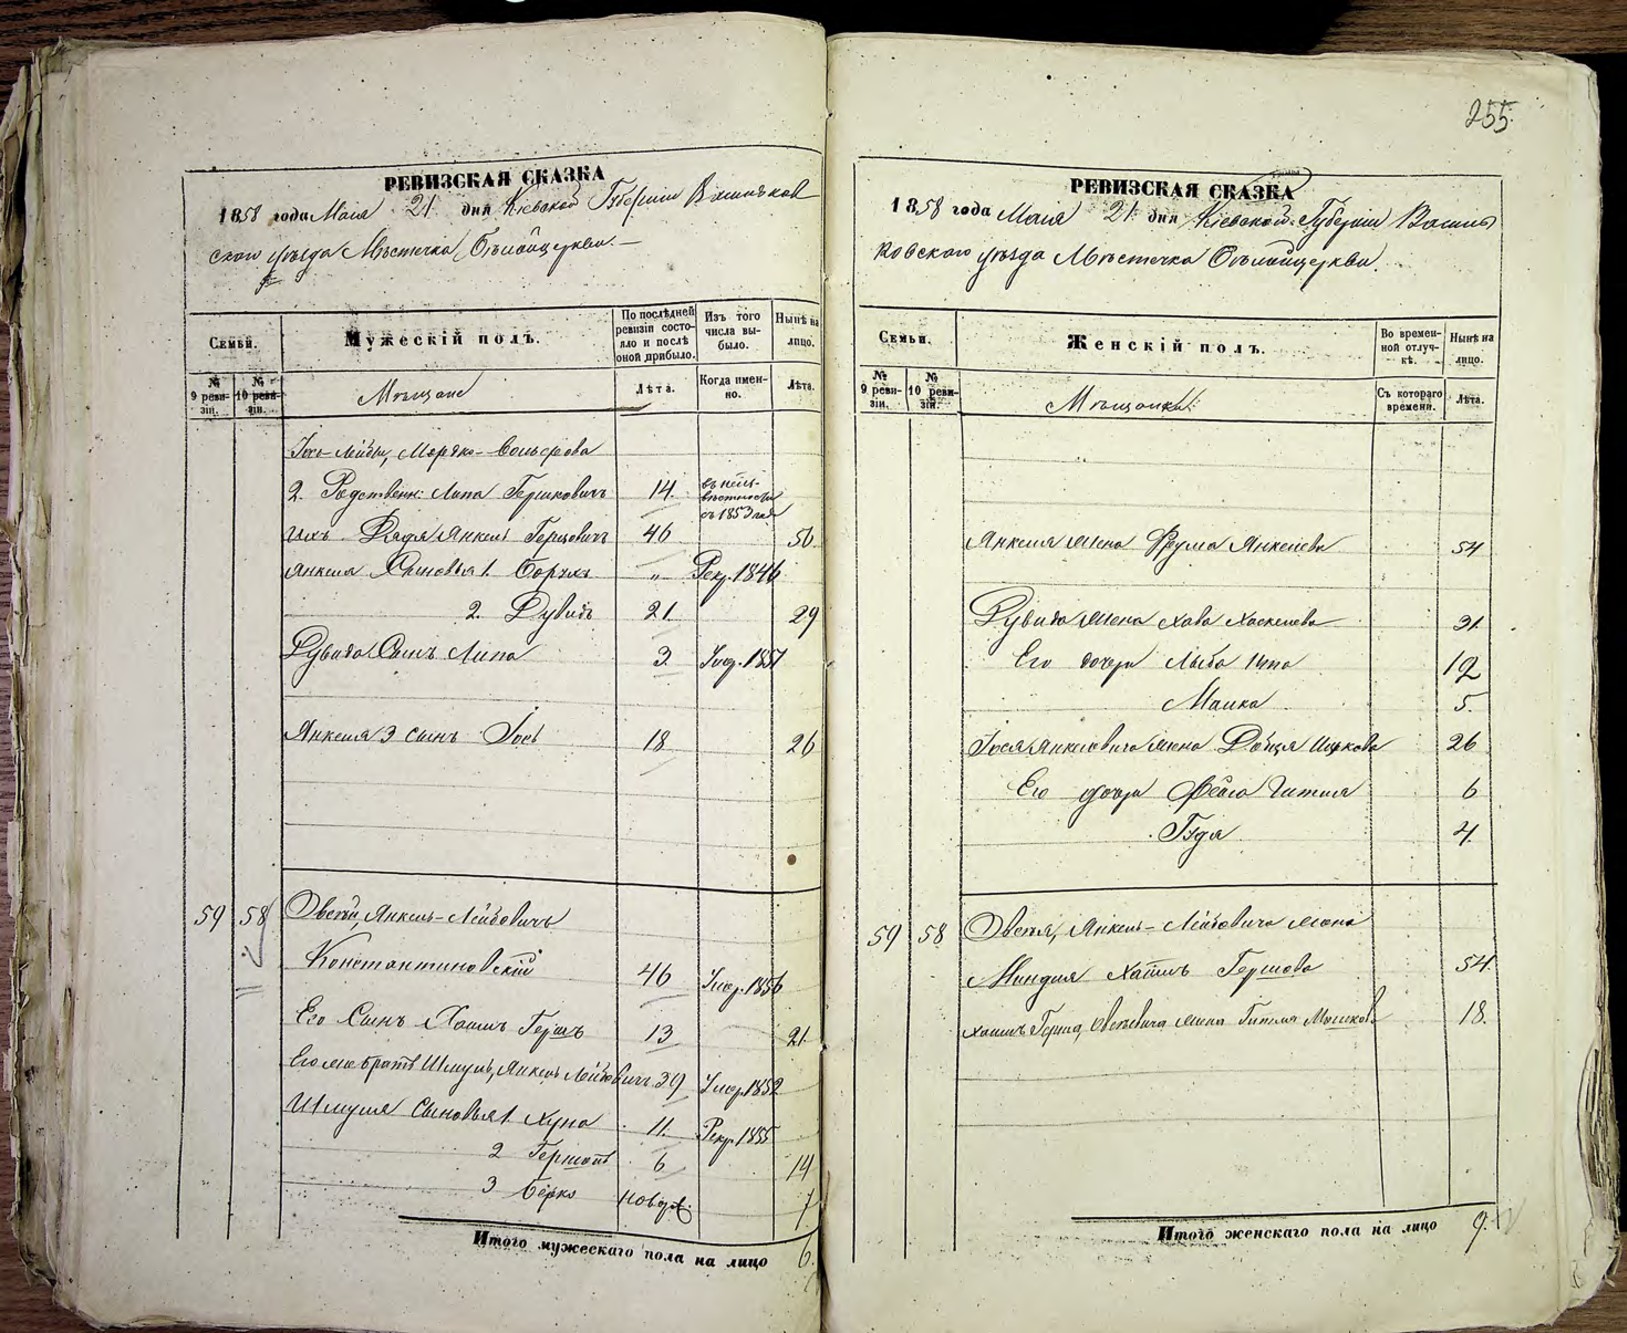 255.
РЕВИЗСКАЯ СКАЗКА
1858 года Маія 21 дня Кіевской Губерніи Васильков
ского уѣзда Мѣстечка Бѣлойцеркви.
Семьи.
Мужескій полъ.
По послѣдней ревизіи состояло и послѣ оной прибыло.
Изъ того числа выбыло.
Нынѣ на лицо.
№ 9 ревизіи.
№ 10 ревизіи.
Мѣщане
Лѣта.
Когда именно.
Лѣта.
Іось-Лейбы, Мордко-
2. Родственн: Липа Гершковичъ 14. въ неизвѣстности съ 1853 года
ихъ Дядя Янкель Гершовичъ 46
Янкеля Сыновья 1. Борухъ " Рекр. 1846
2. Дувидъ 21. 29
Дувида Сынъ Липа 3. Умер. 1851
Янкеля 3 сынъ Іось 18 26
59 58 Янкель-Лейбовичъ
Константиновскій 46 Умер. 1856
Его Сынъ Хаимъ Гершъ 13 21.
Его же братъ Шмуль, Янкель Лейбовичъ 39 Умер. 1852
Шмуля Сыновья 1. Хуна 11. Рекр. 1855
2 Гершонъ 6 14
3 Берко новор. 7
Итого мужескаго пола на лицо 6.
РЕВИЗСКАЯ СКАЗКА
1858 года Маія 21 дня Кіевской Губерніи Василь
ковского уѣзда Мѣстечка Бѣлойцеркви.
Семьи.
Женскій полъ.
Во временной отлучкѣ.
Нынѣ на лицо.
№ 9 ревизіи.
№ 10 ревизіи.
Мѣщанки.
Съ котораго времени.
Лѣта.
Янкеля жена Фрума Янкелева 54
Дувида жена Хава Хаскелева 31.
Его дочери 12
Малка 5.
Іося Янкелевича жена Двейра Ицкова 26
Его дочери Фейга Гитля 6
Гудя 4.
59 58 Янкель-Лейбовича жена
Миндля Хаимъ Гершова 54.
Хаимъ Герша, жена Гитля 18.
Итого женскаго пола на лицо 9.